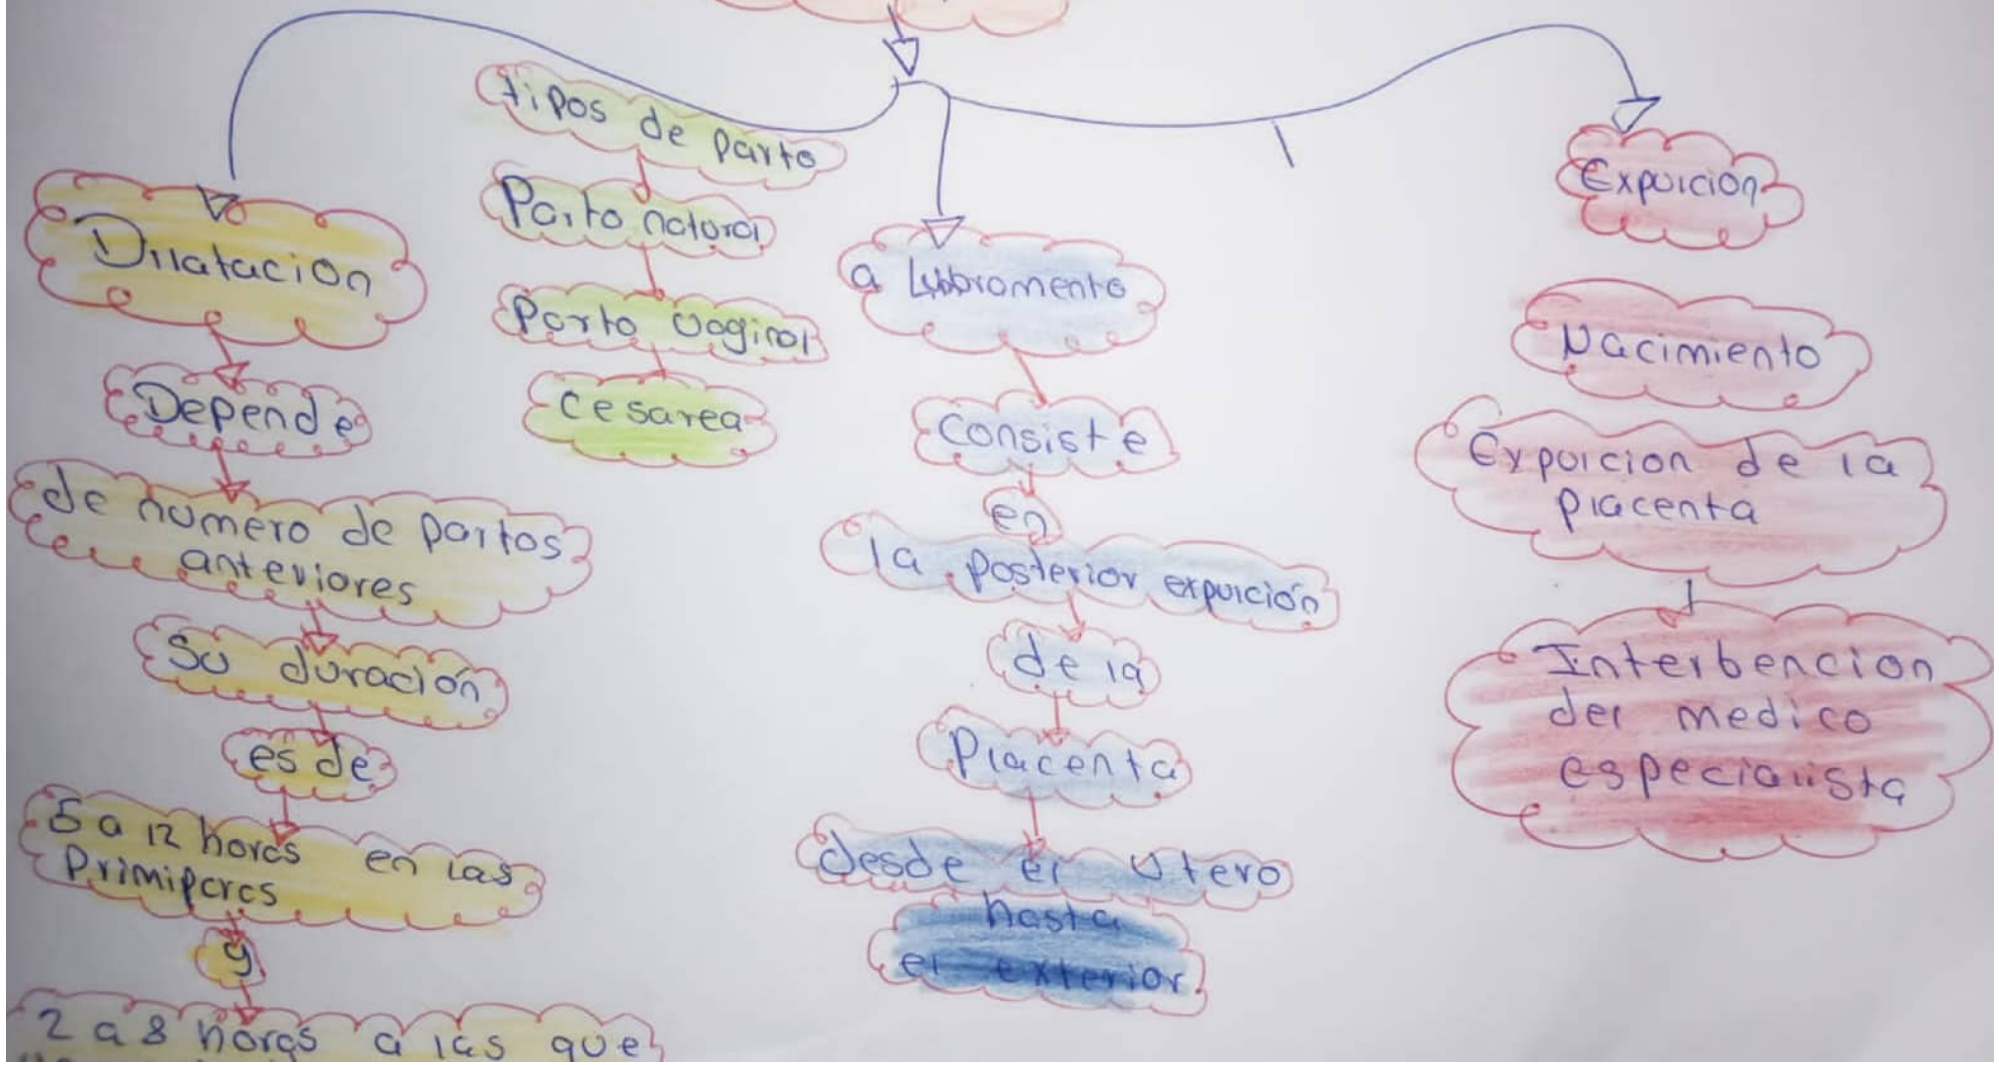 Dilatacion
Depende
de numero de partos
anteriores
Su duración
es de
5 a 12 horas en las
Primiparas
y
2 a 8 horas a las que
tipos de parto
Parto natural
Parto vaginal
cesarea
a Lubbramento
Consiste
en
la posterior expulción
de la
Placenta
desde el utero
hasta
el exterior
Expulcion
Nacimiento
Expulcion de la
placenta
Interbencion
del medico
especialista